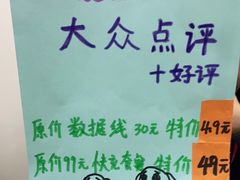 大众点评
+好评
原价 数据线 30元 特价 49元
原价99元 快充套装 特价 49元